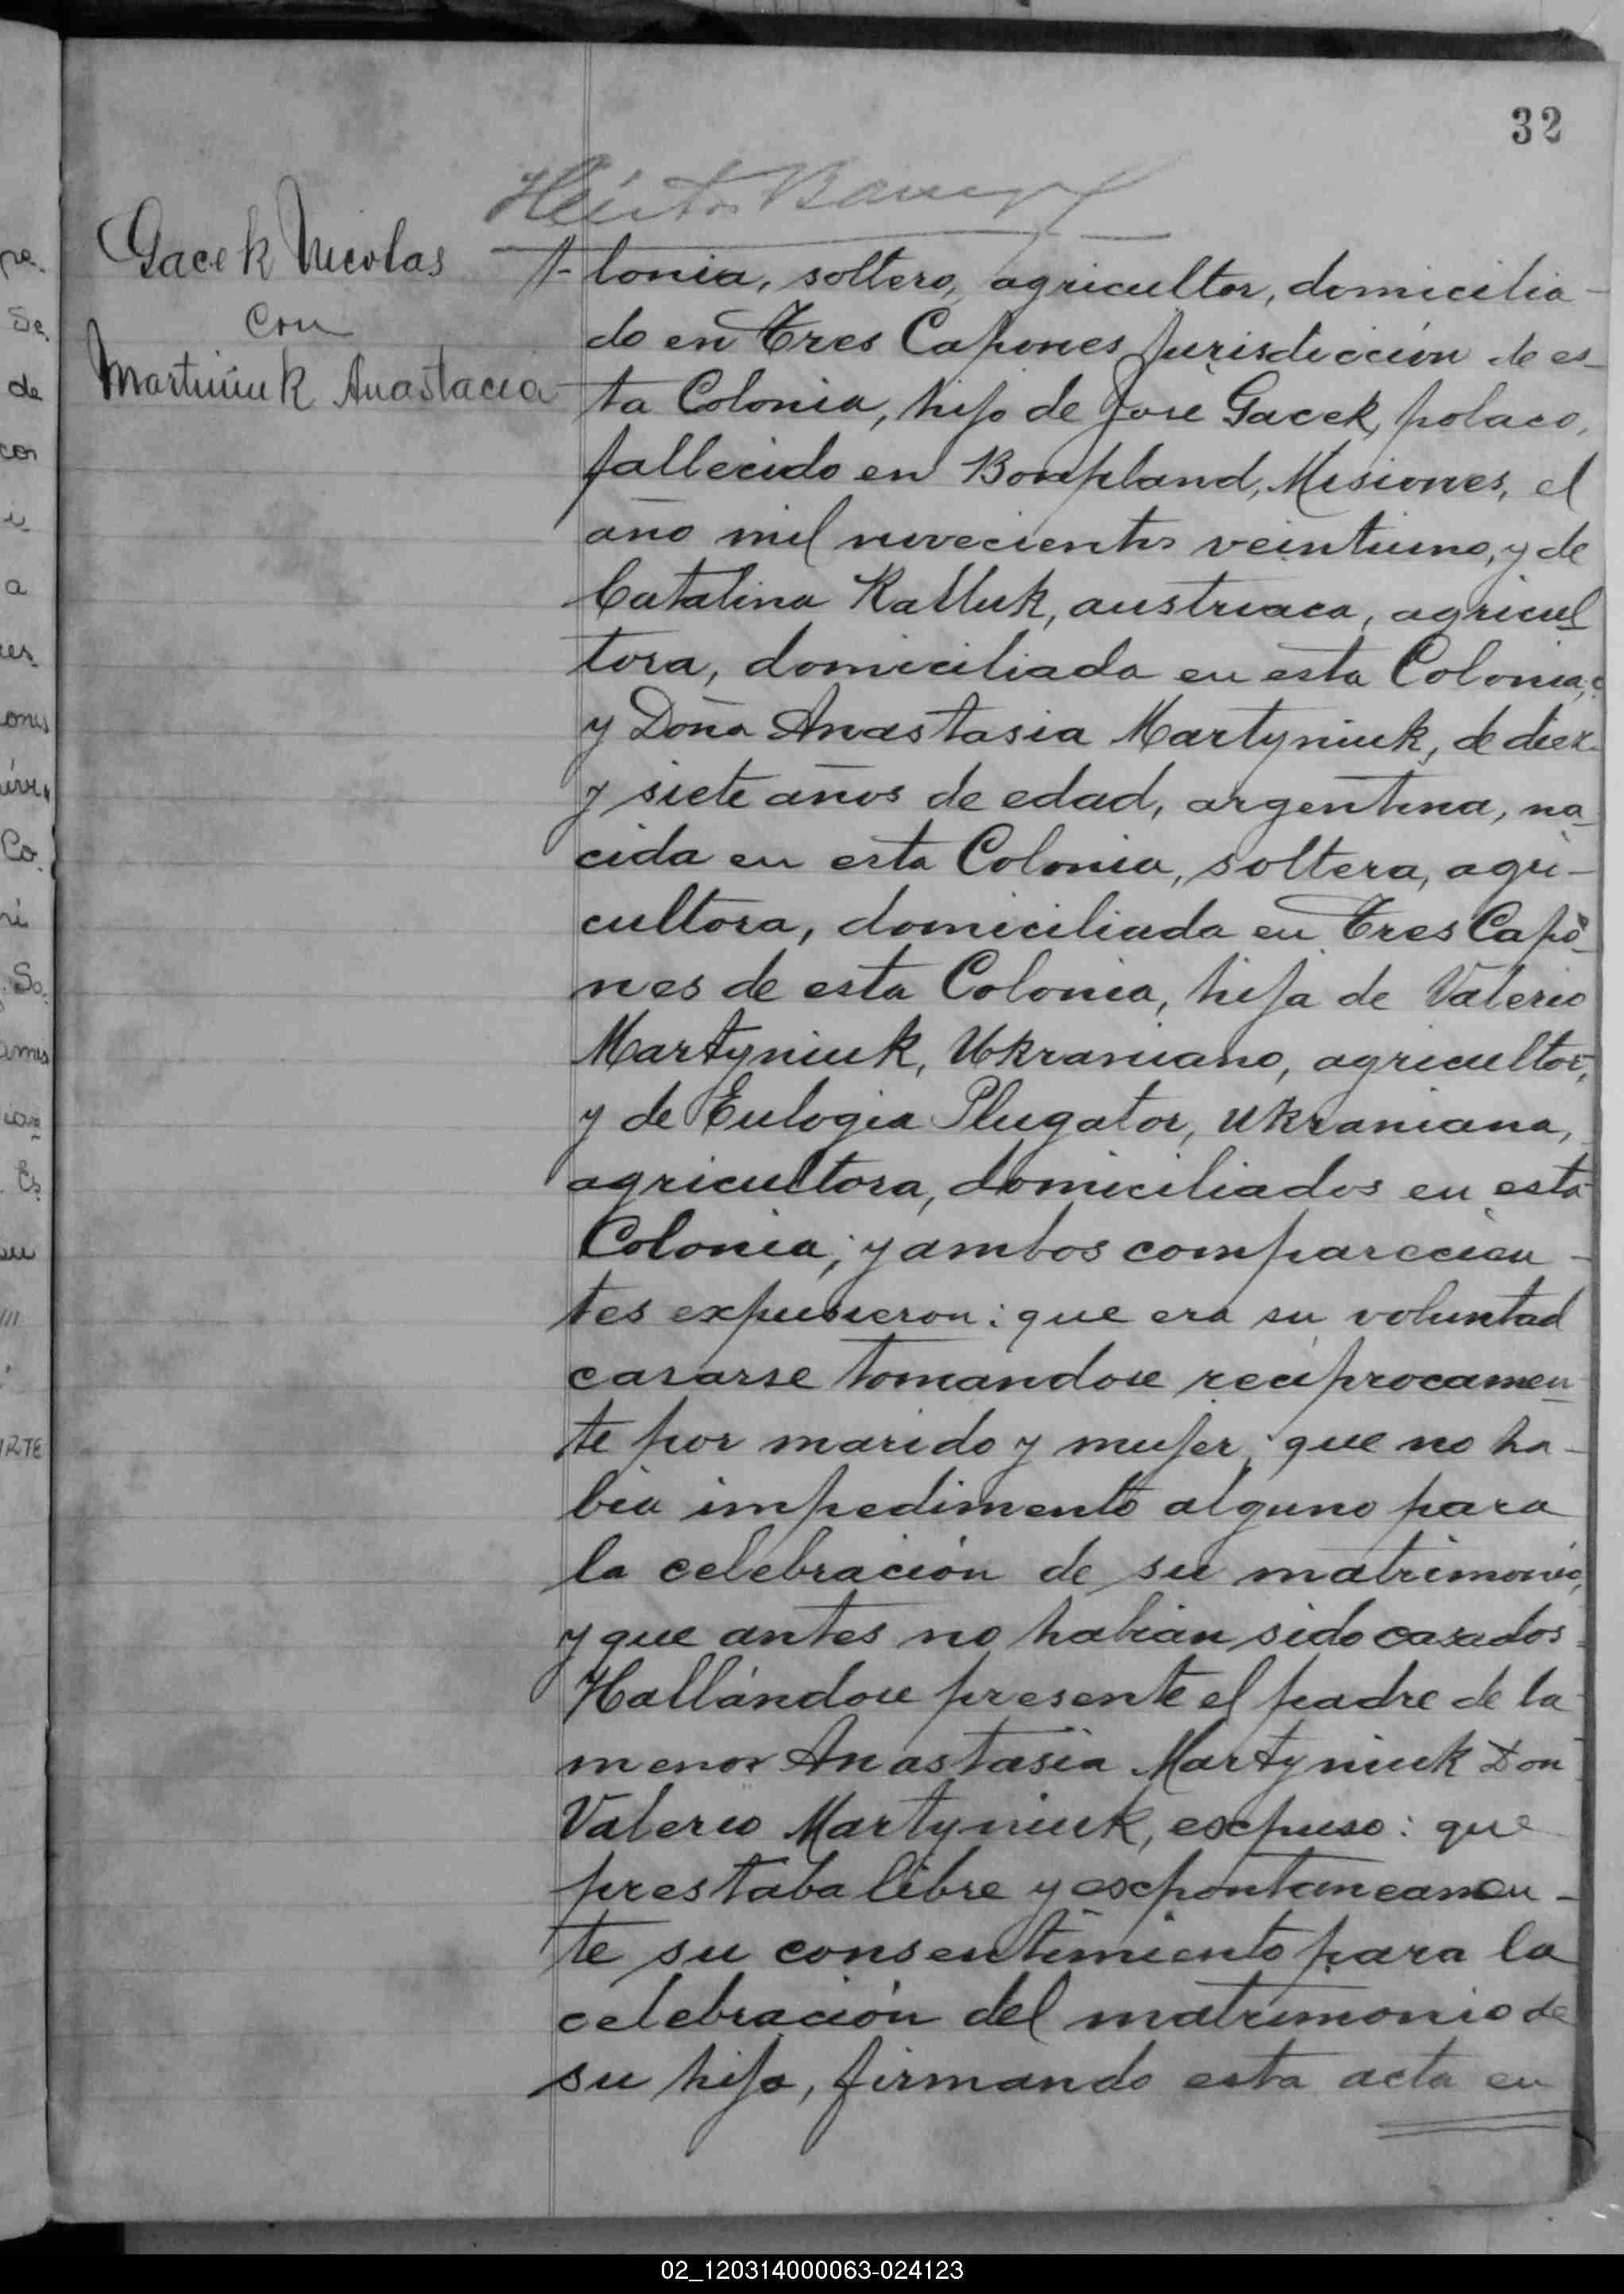 32
Gacek Nicolas
con
Martiniuk Anastacia
lonia, soltero, agricultor, domicilia-
do en Tres Capones jurisdicción de es-
ta Colonia, hijo de José Gacek, polaco,
fallecido en Bompland, Misiones, el
año mil novecientos veintiuno, y de
Catalina Kalluk, austriaca, agricul
tora, domiciliada en esta Colonia;
y Doña Anastasia Martyniuk, de diez
y siete años de edad, argentina, na
cida en esta Colonia, soltera, agri-
cultora, domiciliada en Tres Capo
nes de esta Colonia, hija de Valerio
Martyniuk, Ukraniano, agricultor,
y de Eulogia Plugator, Ukraniana,
agricultora, domiciliados en esta
Colonia; y ambos comparecien-
tes expusieron: que era su voluntad
casarse tomandose reciprocamen
te por marido y mujer, que no ha-
bia impedimento alguno para
la celebración de su matrimonio,
y que antes no habian sido casados.
Hallándose presente el padre de la
menor Anastasia Martyniuk Don
Valerio Martyniuk, expuso: que
prestaba libre y expontaneamen-
te su consentimiento para la
celebración del matrimonio de
su hija, firmando esta acta en
02_120314000063-024123